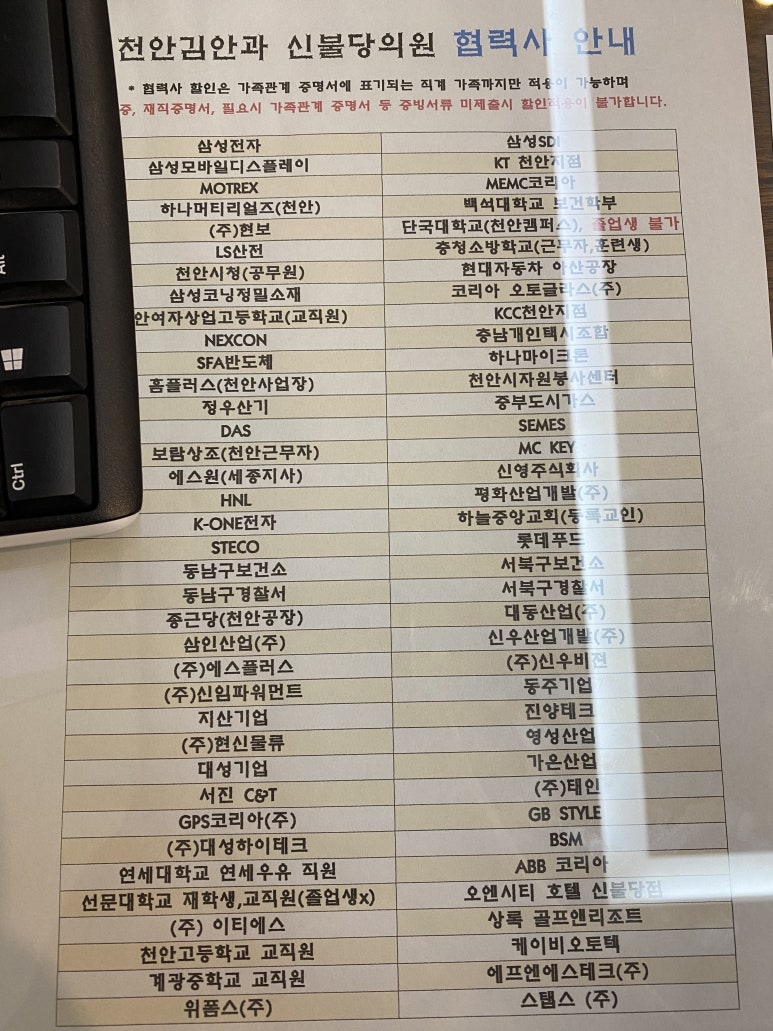 천안김안과 신불당의원 협력사 안내
* 협력사 할인은 가족관계 증명서에 표기되는 직계 가족까지만 적용이 가능하며
증, 재직증명서, 필요시 가족관계 증명서 등 증빙서류 미제출시 할인적용이 불가합니다.
삼성전자 삼성SDI
삼성모바일디스플레이 KT 천안지점
MOTREX MEMC코리아
하나머티리얼즈(천안) 백석대학교 보건학부
(주)현보 단국대학교(천안캠퍼스), 졸업생 불가
LS산전 충청소방학교(근무자,훈련생)
천안시청(공무원) 현대자동차 아산공장
삼성코닝정밀소재 코리아 오토글라스(주)
안여자상업고등학교(교직원) KCC천안지점
NEXCON 충남개인택시조합
SFA반도체 하나마이크론
홈플러스(천안사업장) 천안시자원봉사센터
정우산기 중부도시가스
DAS SEMES
보람상조(천안근무자) MC KEY
에스원(세종지사) 신영주식회사
HNL 평화산업개발(주)
K-ONE전자 하늘중앙교회(등록교인)
STECO 롯데푸드
동남구보건소 서북구보건소
동남구경찰서 서북구경찰서
종근당(천안공장) 대동산업(주)
삼인산업(주) 신우산업개발(주)
(주)에스플러스 (주)신우비젼
(주)신임파워먼트 동주기업
지산기업 진양테크
(주)현신물류 영성산업
대성기업 가온산업
서진 C&T (주)태인
GPS코리아(주) GB STYLE
(주)대성하이테크 BSM
연세대학교 연세우유 직원 ABB 코리아
선문대학교 재학생,교직원(졸업생x) 오엔시티 호텔 신불당점
(주) 이티에스 상록 골프앤리조트
천안고등학교 교직원 케이비오토텍
계광중학교 교직원 에프엔에스테크(주)
위폼스(주) 스탭스 (주)
Alt
Ctrl